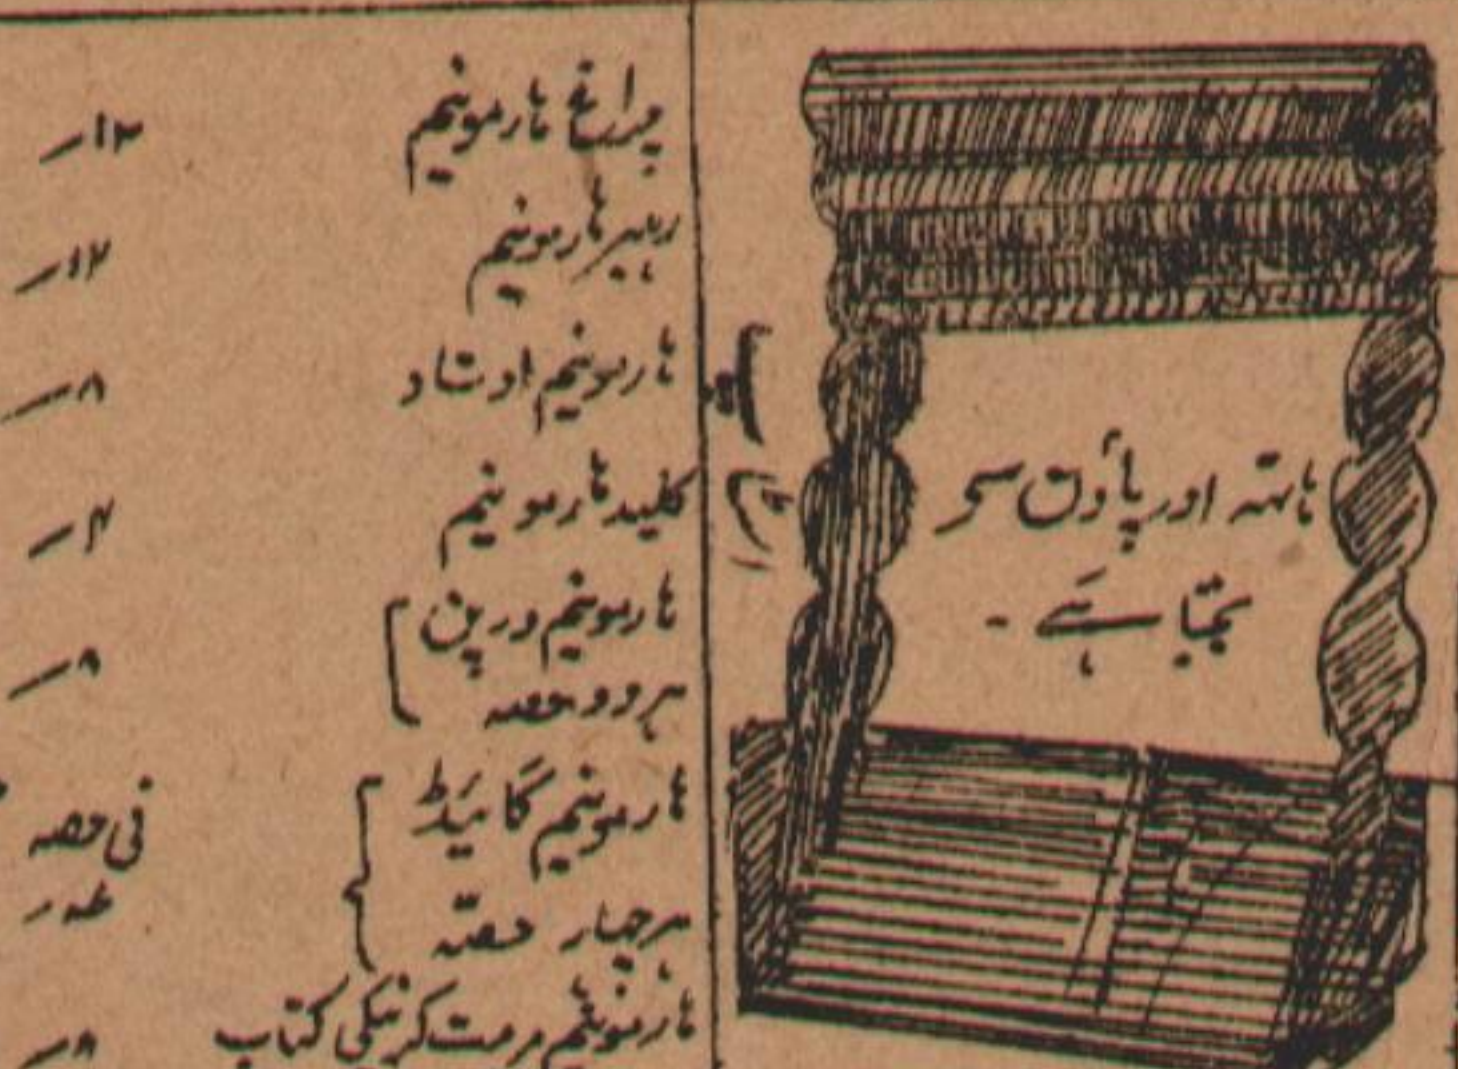 ہاتہ اور پاؤں سے
بجتا ہے -
چراغ ہارمونیم ۱۲؍
رہبر ہارمونیم ۱۲؍
ہارمونیم اوستاد ۸؍
کلید ہارمونیم ۴؍
ہارمونیم درپن
ہر دو حصہ ۸؍
ہارمونیم گائیڈ فی حصہ
ہر چہار حصہ
ہارمونیم مرمت کرنیکی کتاب ۸؍